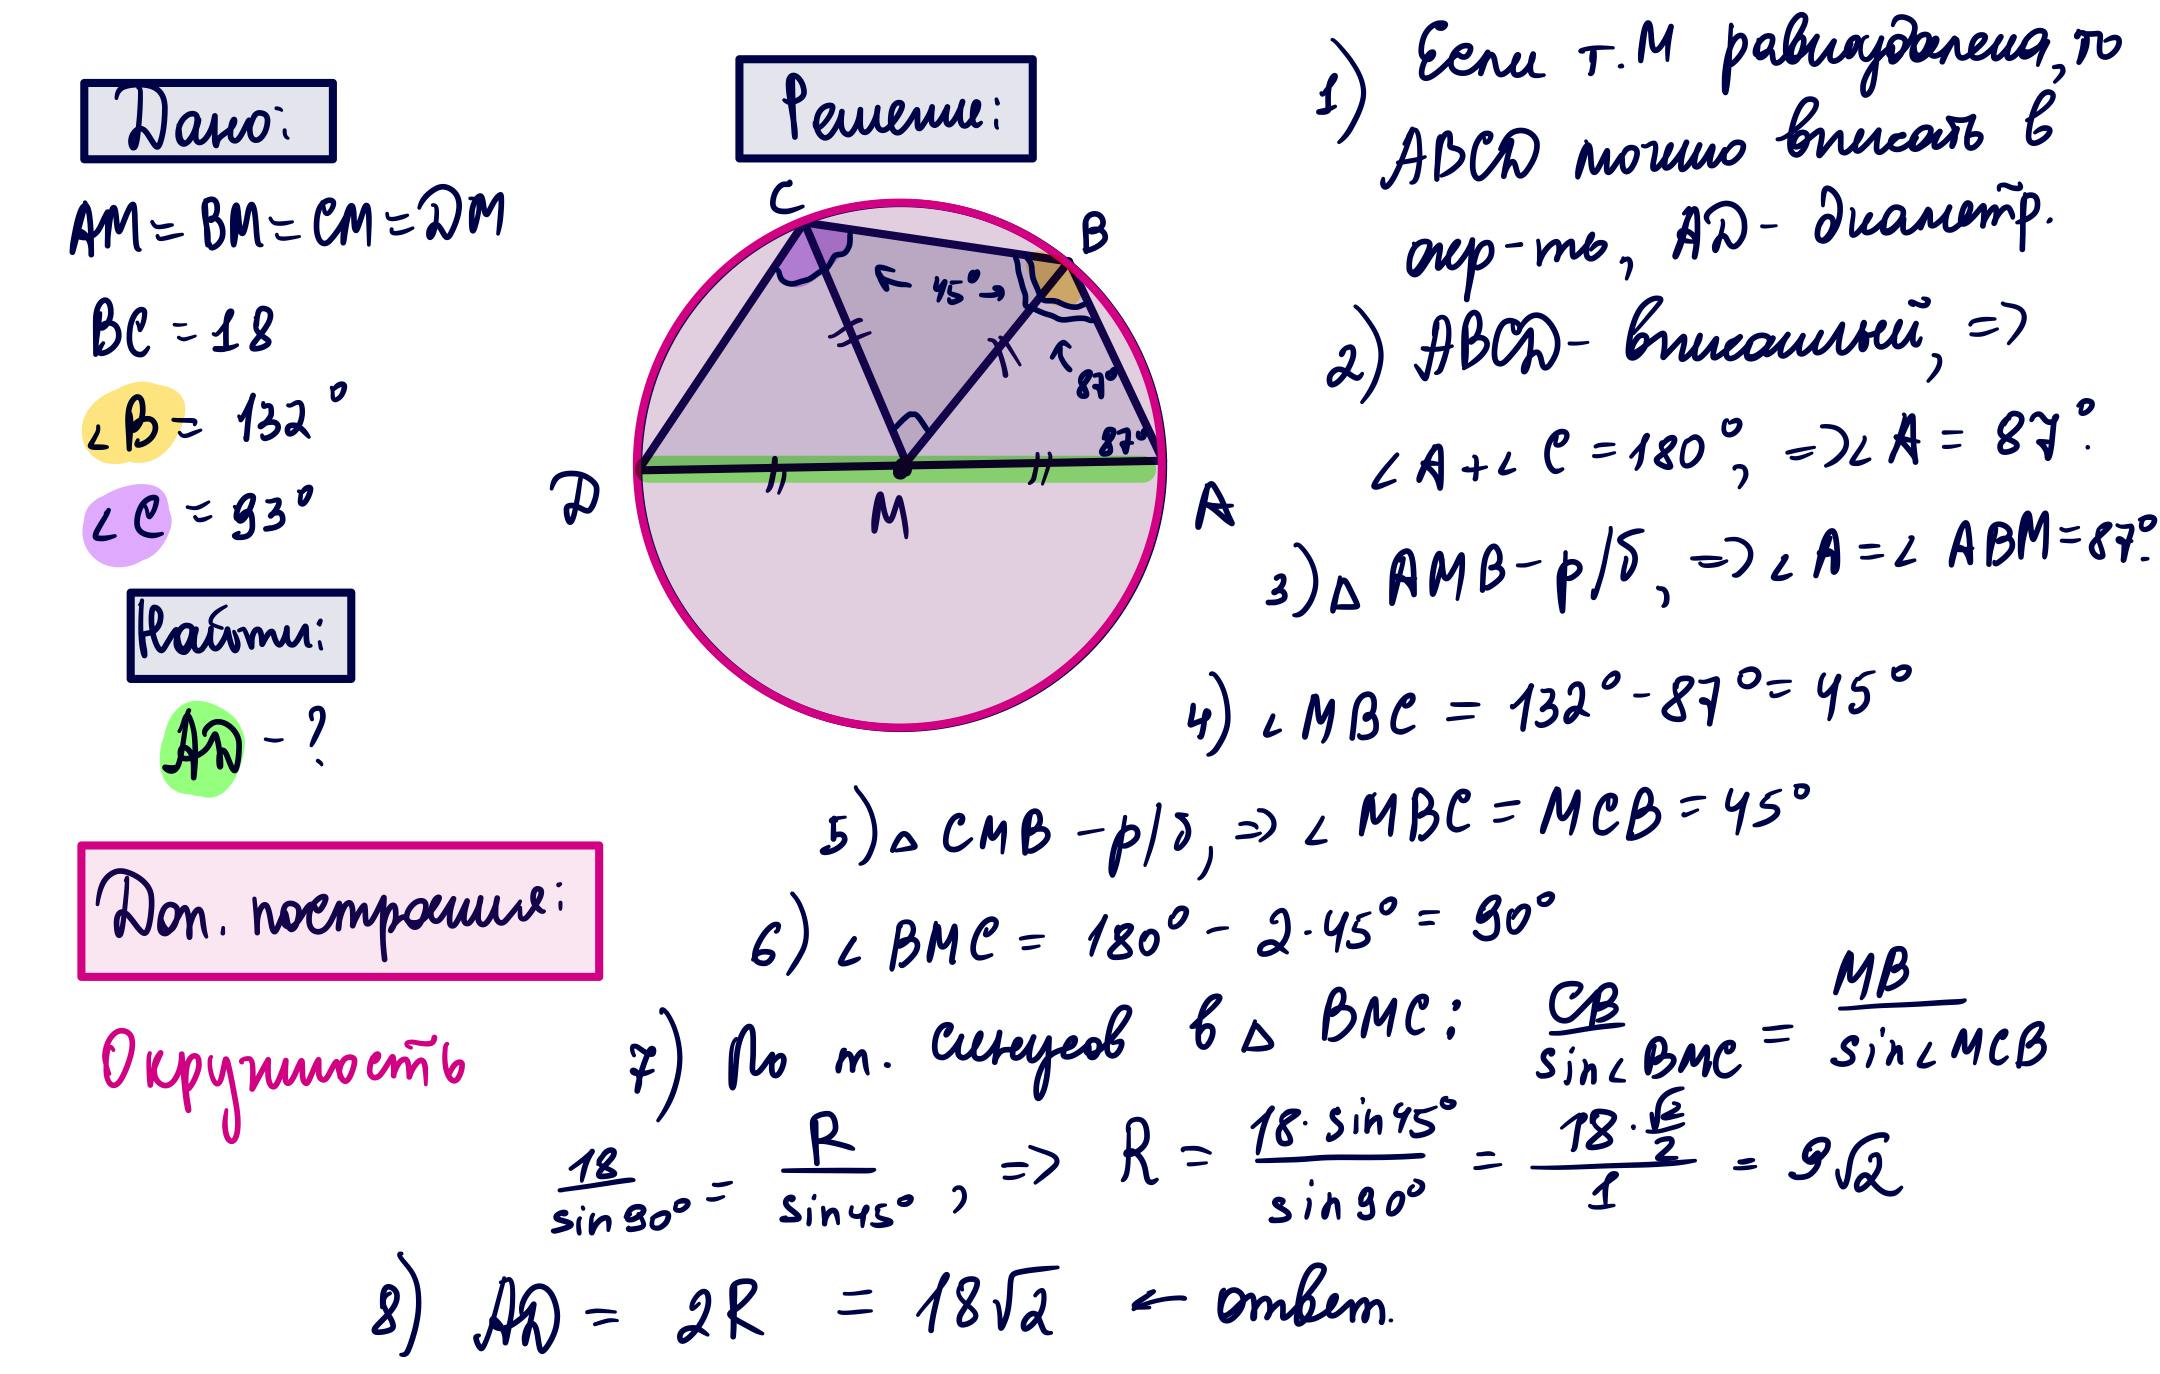 Дано:
AM = BM = CM = DM
BC = 18
∠B = 132°
∠C = 93°
Найти:
AD - ?
Доп. построение:
Окружность
Решение:
C
B
45°
87°
87°
D
M
A
1) Если т. M равноудалена, то
ABCD можно вписать в
окр-ть, AD - диаметр.
2) ABCD - вписанный, =>
∠A + ∠C = 180°, => ∠A = 87°.
3) △ AMB - р/б, => ∠A = ∠ABM = 87°.
4) ∠MBC = 132° - 87° = 45°
5) △ CMB - р/б, => ∠MBC = MCB = 45°
6) ∠BMC = 180° - 2·45° = 90°
7) По т. синусов в △ BMC: CB / sin∠BMC = MB / sin∠MCB
18 / sin90° = R / sin45°, => R = 18·sin45° / sin90° = 18·√2/2 / 1 = 9√2
8) AD = 2R = 18√2 ← ответ.